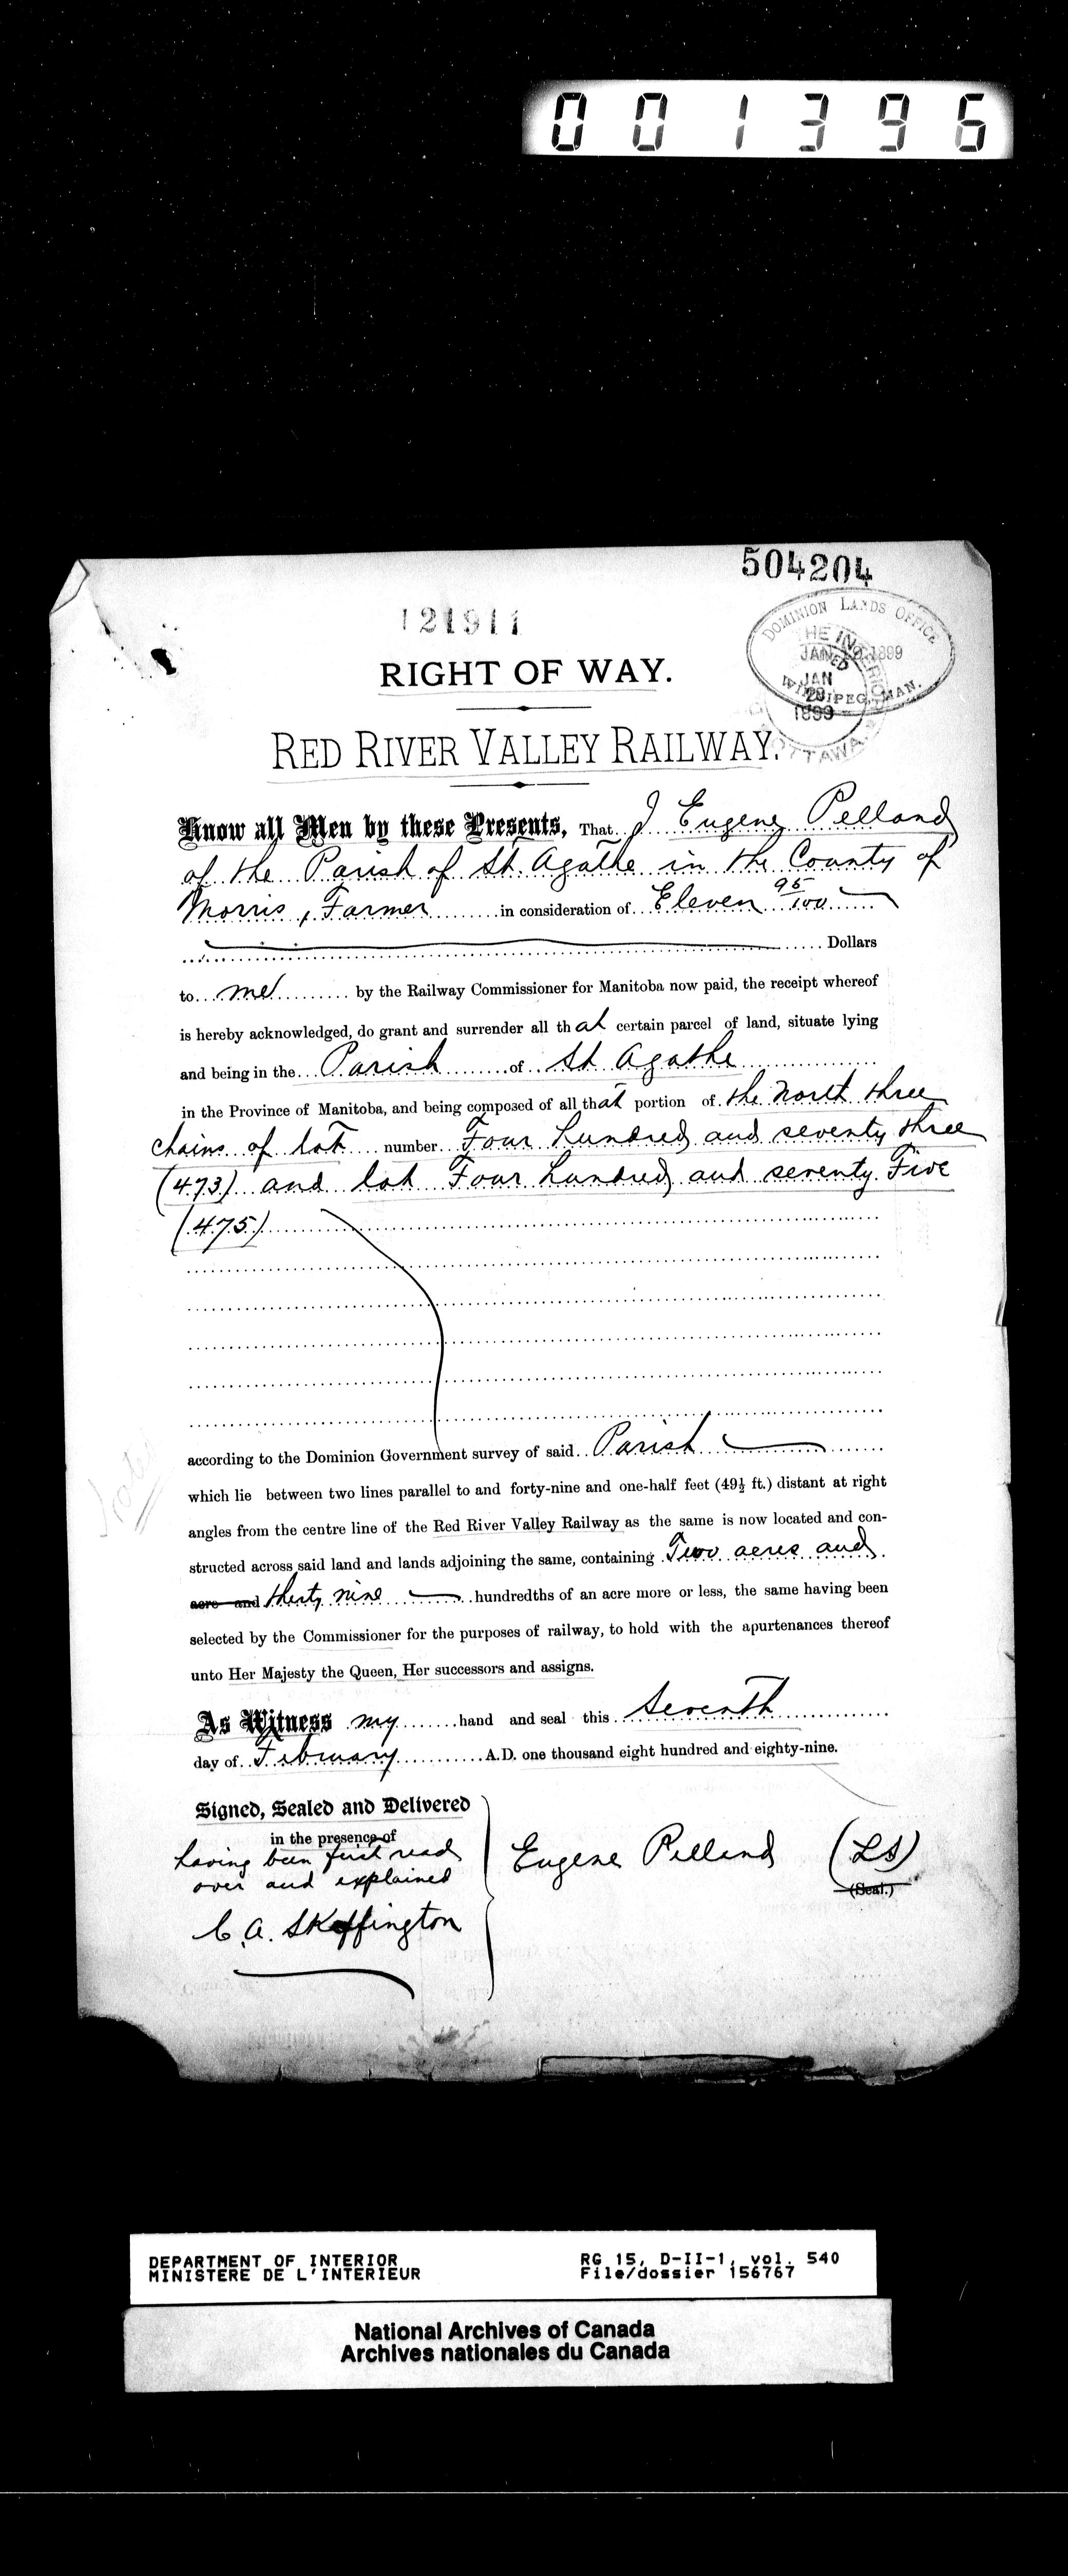 001396
504204
121911
DOMINION LANDS OFFICE
JAN 1899
WINNIPEG, MAN.
THE INTERIOR
JAN
28
1899
OTTAWA
RIGHT OF WAY.
RED RIVER VALLEY RAILWAY.
Know all Men by these Presents, That I Eugene Pelland
of the Parish of St. Agathe in the County of
Morris, Farmer in consideration of Eleven 95/100
Dollars
to me by the Railway Commissioner for Manitoba now paid, the receipt whereof
is hereby acknowledged, do grant and surrender all that certain parcel of land, situate lying
and being in the Parish of St Agathe
in the Province of Manitoba, and being composed of all that portion of the North three
chains of lot number Four hundred and seventy three
(473) and lot Four hundred and seventy Five
(475)
according to the Dominion Government survey of said Parish
which lie between two lines parallel to and forty-nine and one-half feet (49½ ft.) distant at right
angles from the centre line of the Red River Valley Railway as the same is now located and con-
structed across said land and lands adjoining the same, containing Two acres and
acre and thirty nine hundredths of an acre more or less, the same having been
selected by the Commissioner for the purposes of railway, to hold with the apurtenances thereof
unto Her Majesty the Queen, Her successors and assigns.
As Witness my hand and seal this Seventh
day of February A.D. one thousand eight hundred and eighty-nine.
Signed, Sealed and Delivered
in the presence of
having been first read
over and explained
C. A. Skeffington
Eugene Pelland (LS)
(Seal.)
DEPARTMENT OF INTERIOR
MINISTERE DE L'INTERIEUR
RG 15, D-II-1, vol. 540
File/dossier 156767
National Archives of Canada
Archives nationales du Canada